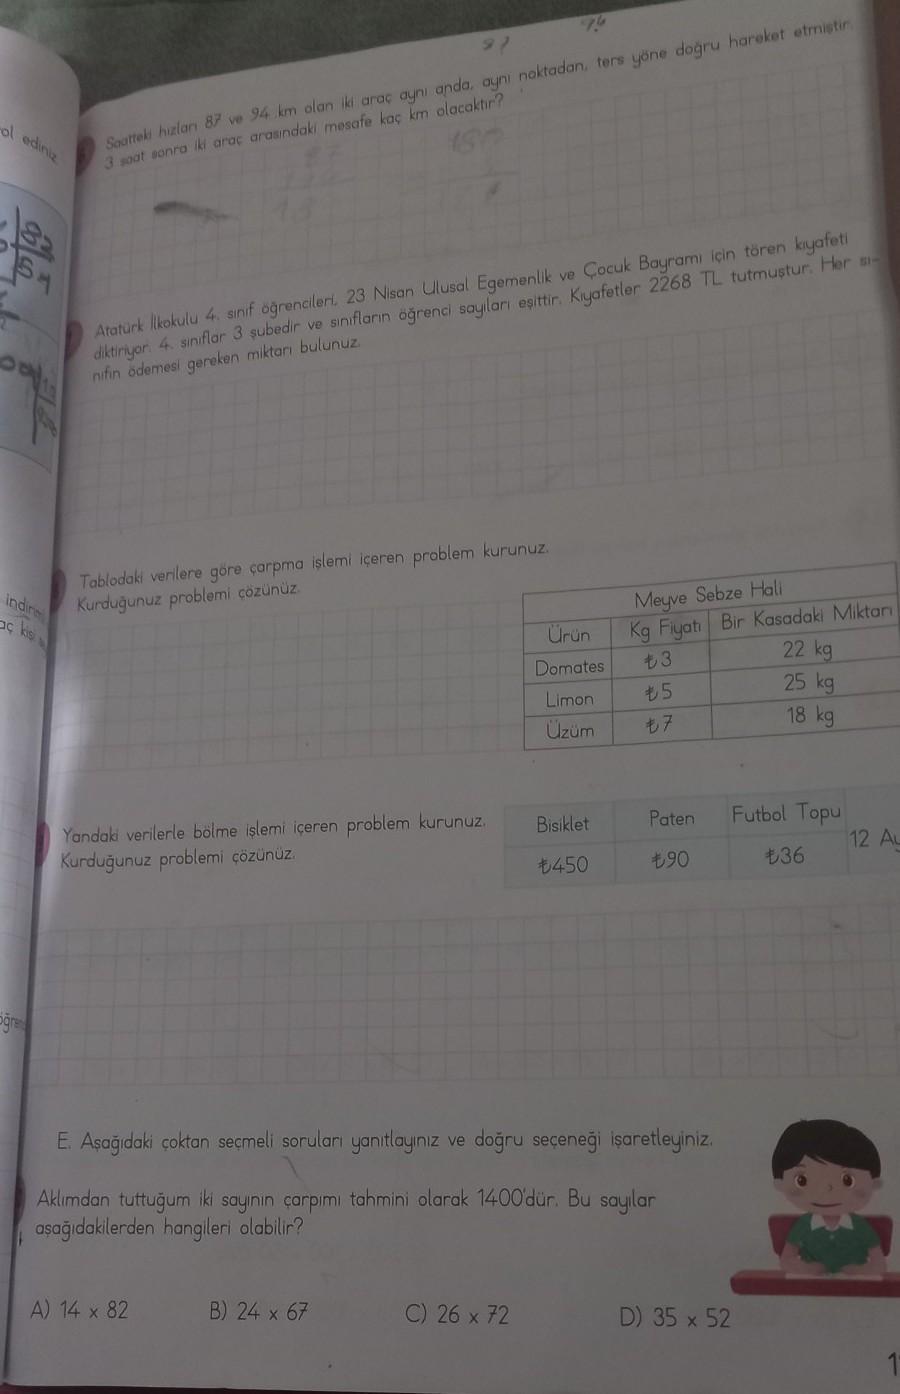 87
94
Saatteki hızları 87 ve 94 km olan iki araç aynı anda, aynı noktadan, ters yöne doğru hareket etmiştir.
3 saat sonra iki araç arasındaki mesafe kaç km olacaktır?
ol ediniz
83
Atatürk İlkokulu 4. sınıf öğrencileri, 23 Nisan Ulusal Egemenlik ve Çocuk Bayramı için tören kıyafeti
diktiriyor. 4. sınıflar 3 şubedir ve sınıfların öğrenci sayıları eşittir. Kıyafetler 2268 TL tutmuştur. Her sı-
nıfın ödemesi gereken miktarı bulunuz.
Tablodaki verilere göre çarpma işlemi içeren problem kurunuz.
Kurduğunuz problemi çözünüz.
indirim
aç kişi
Meyve Sebze Hali
Ürün Kg Fiyatı Bir Kasadaki Miktarı
Domates ₺3 22 kg
Limon ₺5 25 kg
Üzüm ₺7 18 kg
Yandaki verilerle bölme işlemi içeren problem kurunuz.
Kurduğunuz problemi çözünüz.
Bisiklet Paten Futbol Topu
12 Ay
₺450 ₺90 ₺36
E. Aşağıdaki çoktan seçmeli soruları yanıtlayınız ve doğru seçeneği işaretleyiniz.
Aklımdan tuttuğum iki sayının çarpımı tahmini olarak 1400'dür. Bu sayılar
aşağıdakilerden hangileri olabilir?
A) 14 x 82 B) 24 x 67 C) 26 x 72 D) 35 x 52